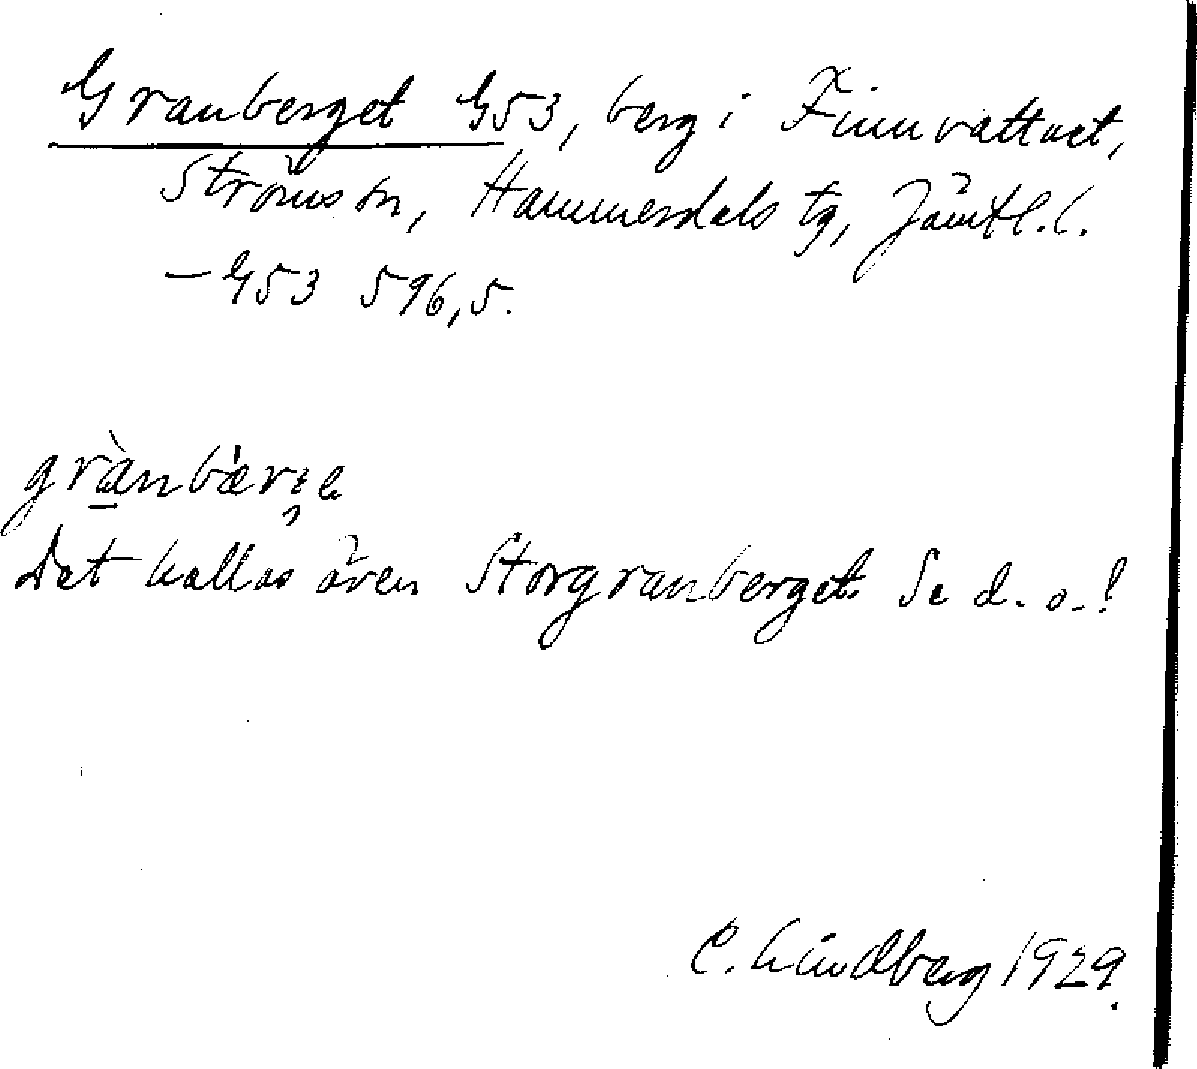 Granberget G53, berg i Finnvattnet,
Ströms sn, Hammerdals tg, Jämtl. l.
— G53 596,5.
grànbær̨e
Det kallas även Storgranberget. Se d. o.!
C. Lindberg 1929.